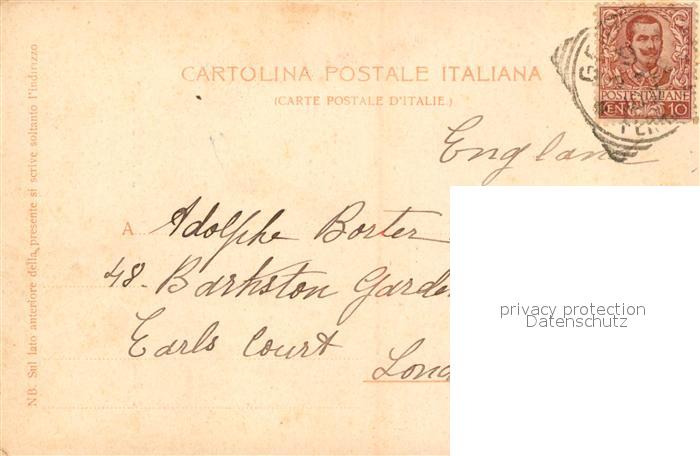 CARTOLINA POSTALE ITALIANA
(CARTE POSTALE D'ITALIE.)
POSTE ITALIANE
CENT 10
England
A Adolphe Borter
48. Barkston Garde
Earls Court
Lond
NB. Sul lato anteriore della presente si scrive soltanto l'indirizzo
privacy protection
Datenschutz